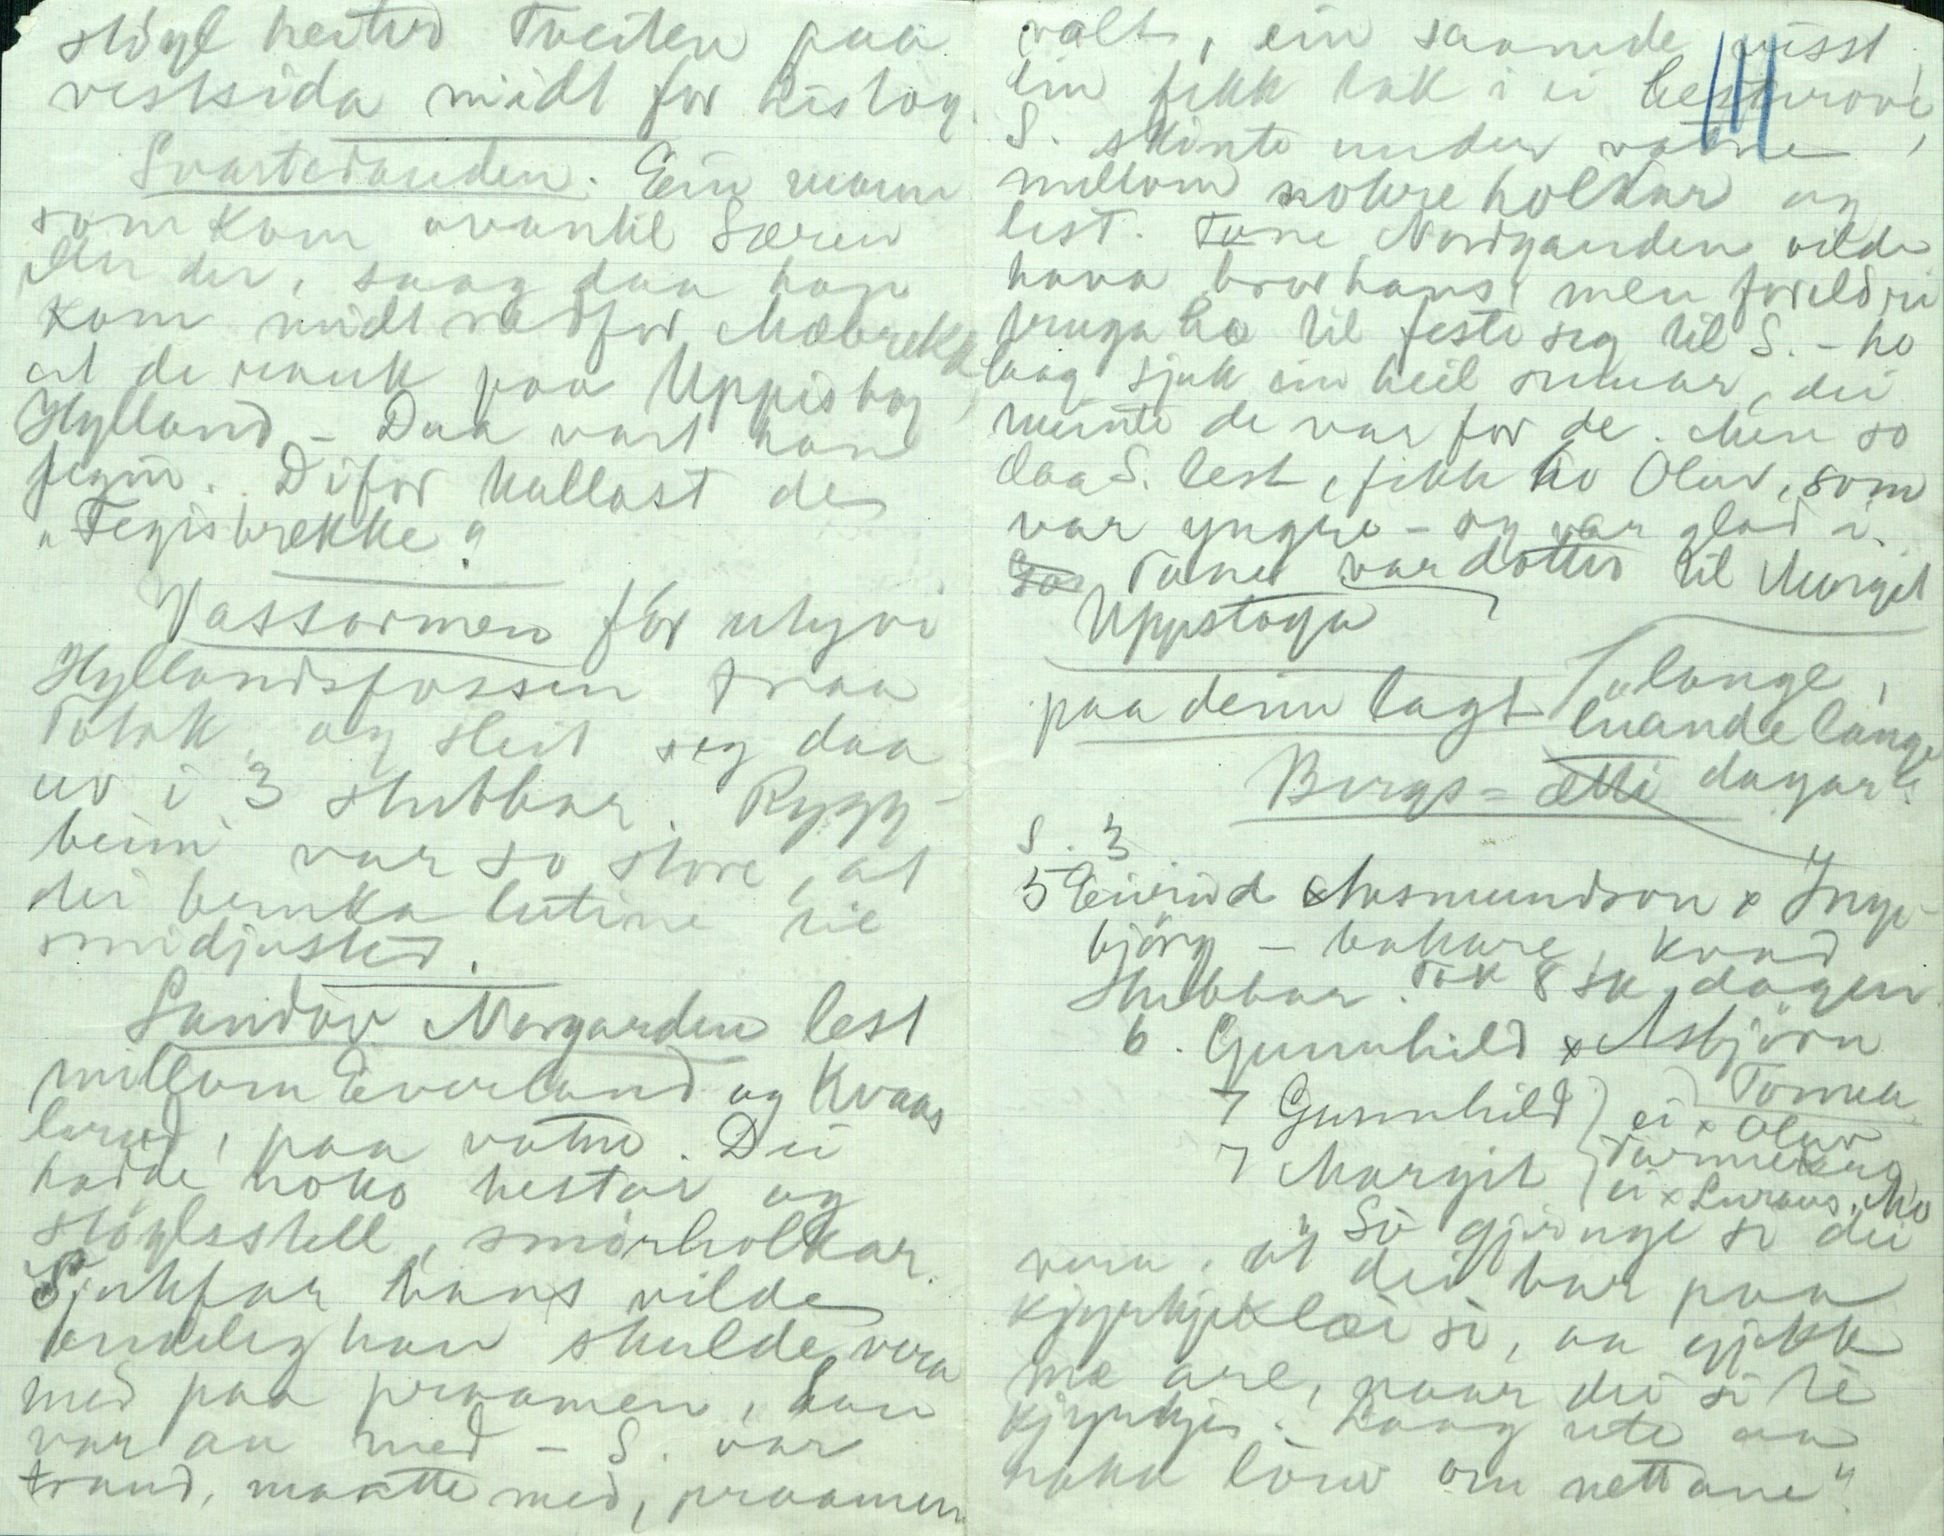 stöyl heiter Tveiten paa
vestsida midt for Listog.
Svartedauden. Ein mann
som kom ovantil Særen
der, saag daa han
kom midt nedfor Mæbrekk
at de rauk paa Uppistog
Hylland – Daa vart han
fegin. Difor kallast de
"Feginsbrekke"
Vassormen för utyvi
Hyllandsfossen fraa
Totak, og sleit seg daa
uv i 3 stubbar. Rygg-
beini var so store, at
dei bruka lutine til
smidjusted.
Sandöv Norgarden lest
millom Everland og Kvaas
lared, paa vatne. Dei
hadde noko hestar og
stöylsstell, smörholkar.
Sjukfar hans vilde
endeleg han skulde vera
med paa praamen, han
var au med – S. var
traud, maatte med, praamen
valt, ein saamde visst,
ein fekk tak i ei hesterove,
S. skinte under vatne,
millom nokre holkar og
lest. Tone Nordgarden vilde
hava bror hans, men foreldri
truga ho til feste seg til S. – ho
laag sjuk ein heil sumar, dei
meinte de var for de. Men so
daa S. lest, fekk ho Olav, som
var yngre – og var glad i.
Tone var dotter til Margit
Uppstoga
paa deim lagt "lange,
luande lange
dagar".
Bergs-ætti
S. 3
5 Eivind Aasmundson x Inge-
björg – bakare, kvad
stubbar. Tok 8 sk. dagen
6. Gunnhild x Asbjörn
7 Gunnhild } ei x Olav
7 Margit } ei x Mo
"So gjönge so dei
vera, at dei bar paa
kjyrkjeklæi si, aa gjekk
mæ are, naar dei si te
kjyrkje. Laag ute aa
nokk löiv om nettane".